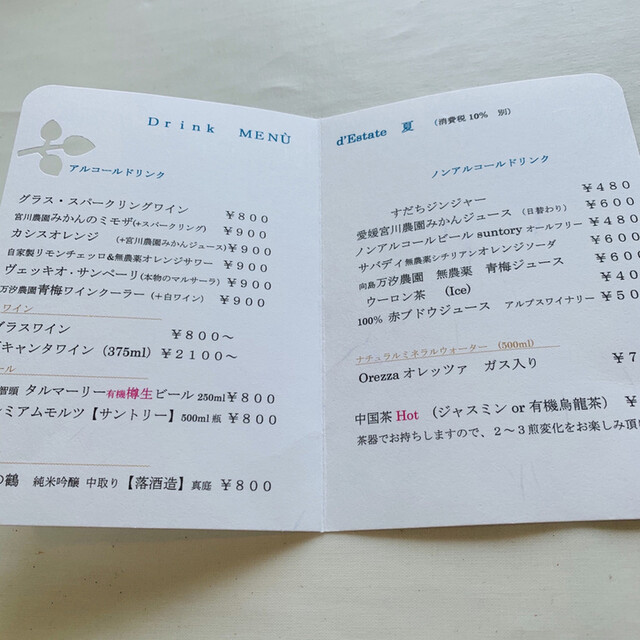 Drink MENÙ
アルコールドリンク
グラス・スパークリングワイン ￥８００
宮川農園みかんのミモザ(+スパークリング) ￥９００
カシスオレンジ (+宮川農園みかんジュース)￥９００
自家製リモンチェッロ&無農薬オレンジサワー ￥９００
ヴェッキオ・サンペーリ(本物のマルサーラ) ￥９００
万汐農園青梅ワインクーラー (＋白ワイン) ￥９００
ワイン
グラスワイン ￥８００～
キャンタワイン (375ml) ￥２１００～
ール
智頭 タルマーリー有機樽生ビール 250ml￥８００
ミアムモルツ【サントリー】500ml瓶 ￥８００
の鶴 純米吟醸 中取り 【落酒造】真庭 ￥８００
d'Estate 夏 (消費税 10% 別)
ノンアルコールドリンク
すだちジンジャー ￥４８０
愛媛宮川農園みかんジュース (日替わり) ￥６００
ノンアルコールビール suntory オールフリー ￥４８０
サバデイ無農薬シチリアンオレンジソーダ ￥６００
向島万汐農園 無農薬 青梅ジュース ￥６００
ウーロン茶 (Ice) ￥４０
100% 赤ブドウジュース アルプスワイナリー ￥５０
ナチュラルミネラルウォーター (500ml)
Orezza オレッツァ ガス入り ￥７
中国茶 Hot (ジャスミン or 有機烏龍茶) ￥
茶器でお持ちしますので、２～３煎変化をお楽しみ頂